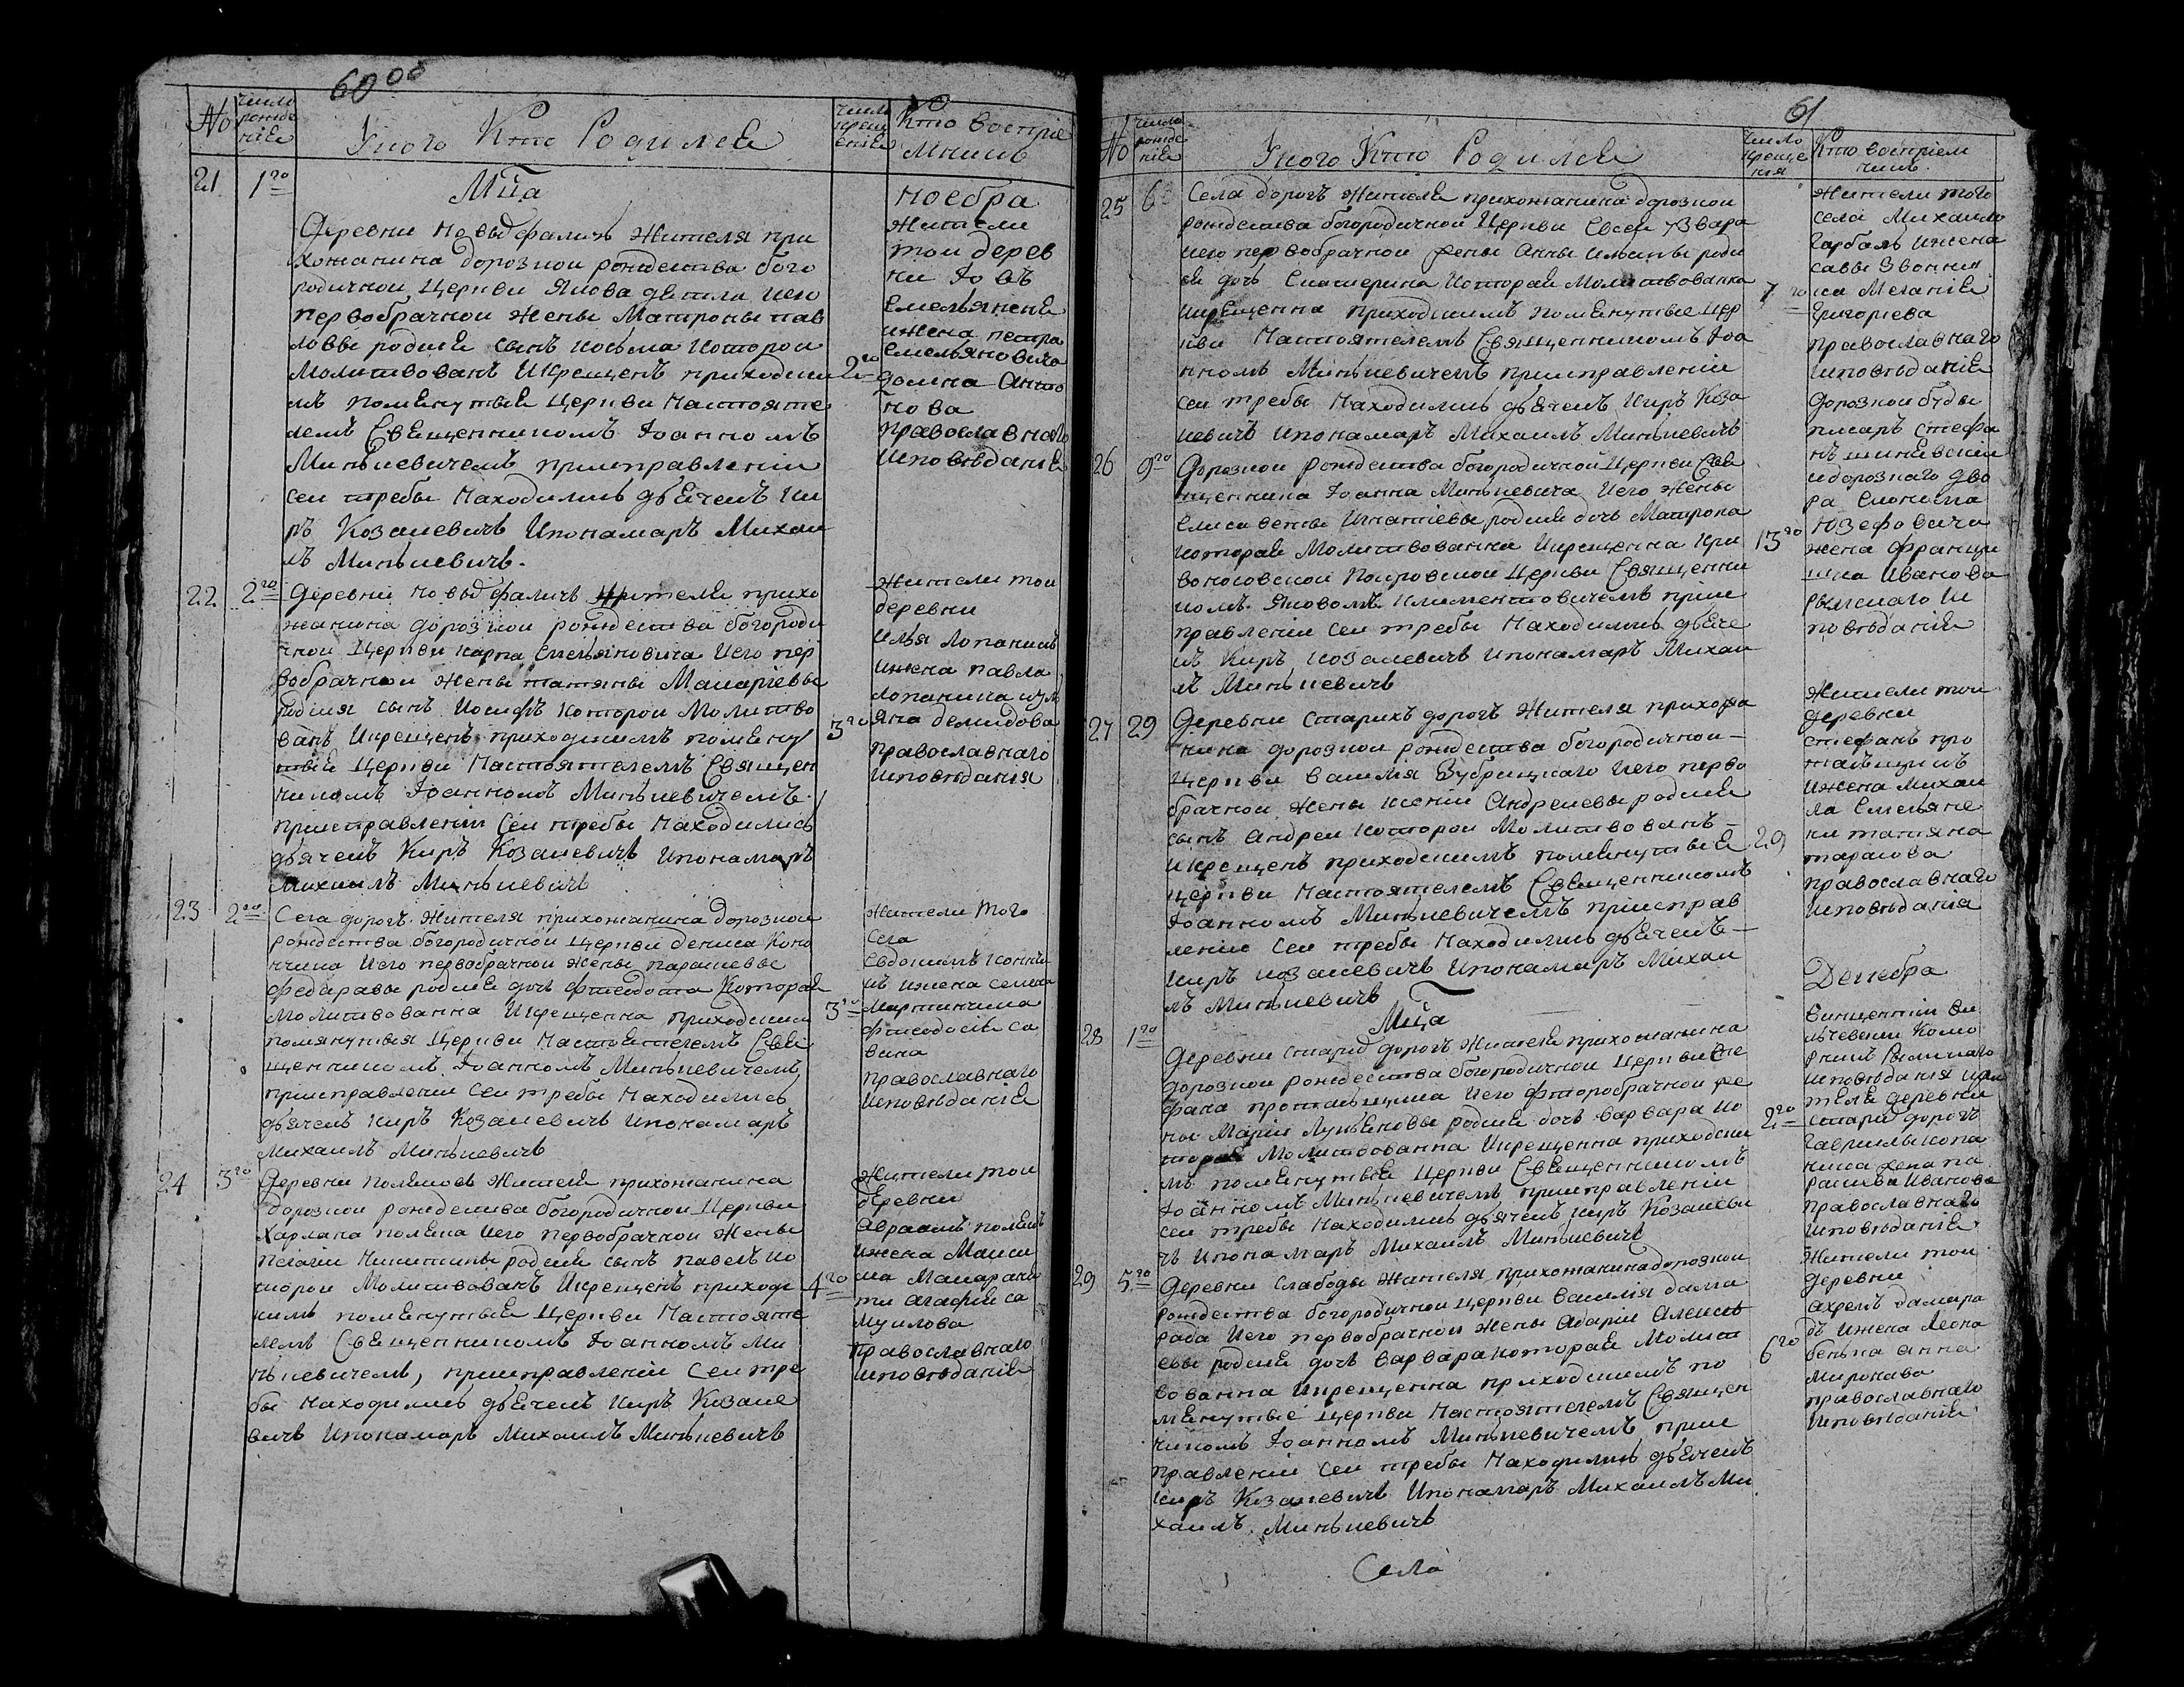 60 об
№
число рожде нiя
У кого Кто Родился
число крещ енiя
Кто воспрiе мникъ
21
1го
Мца
ноебра
Деревни новыдфаличъ жителя при
хожанина дорозкои рождества бого
родичной Церкви Якова его
первобрачной жены Матроны пав
ловы родися сынъ косьма которой
Молитвованъ Икрещенъ приходски
мъ помѣнутыя Церкви Настояте
лемъ Священникомъ Iоанномъ
Минкевичемъ приисправленiи
сеи требы Находились дьячекъ Ки
ръ Козакевичъ Ипонамаръ Михаи
лъ Минкевичъ.
2го
жители
тои дерев
ни
Емельянене
ижена петра
Емельяновича
домна Анто
нова
православнаго
исповѣданiя
22
2го
Деревни новыдфаличъ жителя прихо
жанина дорозкои рождества богороди
чной Церкви карпа Емельяновича Иего пер
вобрачной жены татяны Макарiевы
родися сынъ Иосифъ которой Молитво
ванъ Икрещенъ приходскимъ помѣну
тыя Церкви Настоятелемъ Священ
никомъ Iоанномъ Минкевичемъ
приисправленiи Сеи требы Находились
дьячекъ Киръ Козакевичъ Ипонамаръ
Михаилъ Минкевичъ
3го
жители тои
деревни
илья лопаникъ
ижена павла
лопаника улъ
яна демидова
православнаго
исповѣданiя
23
2го
Села дорогъ жителя прихожанина дорозкои
рождества богородичной Церкви дениса Коно
нчика Иего первобрачной жены парасковьи
федаравы родися дочь феодота Которая
Молитвованна Икрещенна приходским
помянутыя Церкви Настоятелемъ Свя
щенникомъ Iоанномъ Минкевичемъ
приисправленiи сеи требы Находились
дьячекъ киръ Козакевичъ Ипонамаръ
Михаилъ Минкевичъ
3го
жители того
села
Евдокимъ
ижена семена
Мартинчика
феодосiя са
вина
православнаго
исповѣданiя
24
3го
Деревни полешовъ жителя прихожанина
дорозкои рождества богородичной Церкви
Харлана полеша Иего первобрачной жены
пелагiи Никитины родися сынъ павелъ ко
торой Молитвованъ Икрещенъ приходс
кимъ помѣнутыя Церкви Настояте
лемъ Священникомъ Iоанномъ Ми
нкевичемъ, приисправленiи Сеи тре
бы Находились дьячекъ киръ Козаке
вичъ Ипонамаръ Михаилъ Минкевичъ
4го
жители тои
деревни
Авраамъ полешъ
ижена Макси
ма
Агафiя са
муилова
православнаго
исповѣданiя
61
№
число рожде нiя
У кого Кто Родился
число креще нiя
Кто воспрiем никъ
25
6го
Села дорогъ жителя прихожанина дорозкои
рождества богородичной Церкви Евсея Узвара
иего первобрачной жены Анны Ильины роди
ся дочь Екатерина которая Молитвованна
икрещенна приходскимъ помѣнутыя Цер
кви Настоятелемъ Священникомъ Iоа
нномъ Минкевичемъ приисправленiи
сеи требы Находились дьячекъ Киръ Коза
кевичъ Ипонамаръ Михаилъ Минкевичъ
7го
жители того
села Михаило
Гарбаль ижена
саввы
Меланiя
Григорiева
православнаго
исповѣданiя
26
9го
Дорозкои рождества богородичной Церкви Свя
щенника Iоанна Минкевича Иего жены
Елисаветы Игнатiевы родися дочь Матрона
которая Молитвованна Икрещенна кри
воносовской покровской Церкви Священни
комъ Яковомъ Климентовичемъ приис
правленiи сеи требы Находились дьяче
къ Киръ козакевичъ Ипонамаръ Михаи
лъ Минкевичъ
13го
дорозкой буды
писаръ стефа
нъ
идорозкаго дво
ра економа
Юзефовича
жена францы
шка Иванова
рымскаго и
повѣданiя
27
29
Деревни старихъ дорогъ жителя прихожа
нина дорозкои рождества богородичной
Церкви василiя Зубрицкаго Иего перво
брачной жены ксенiи Андреевы родися
сынъ Андреи которой Молитвованъ
Икрещенъ приходскимъ помѣнутыя
Церкви Настоятелемъ Священникомъ
Iоанномъ Минкевичемъ приисправ
ленiи сеи требы Находились дьячекъ
Киръ козакевичъ Ипонамаръ Михаи
лъ Минкевичъ
29
жители тои
деревни
стефанъ про
ижена Михаи
ла Емельяне
ни татяна
тарасова
православнаго
исповѣданiя
28
1го
Мца
Декебра
Деревни старих дорогъ жителя прихожанина
дорозкои рождества богородичной Церкви сте
фана Иего фторобрачной же
ны Марiи Лукьяновы родися дочь варвара ко
торая Молитвованна Икрещенна приходски
мъ помѣнутыя Церкви Священникомъ
Iоанномъ Минкевичемъ приисправленiи
сеи требы Находились дьячекъ киръ Козакеви
чъ Ипонамаръ Михаилъ Минкевичъ
2го
винцентiи
исповѣданiя ижи
теля деревни
старих дорогъ
Гаврилы
жена па
раскева Иванова
православнаго
исповѣданiя
29
5го
Деревни слабоды жителя прихожанина дорозкои
рождества богородичной Церкви василiя дама
рада Иего первобрачной жены Алексѣ
евы родися дочь варвара которая Молит
вованна Икрещенна приходскимъ по
мѣнутыя Церкви Настоятелемъ Священ
никомъ Iоанномъ Минкевичемъ приис
правленiи сеи требы Находились дьячекъ
киръ Козакевичъ Ипонамаръ Михаилъ Ми
хаилъ Минкевичъ
6го
жители тои
деревни
дамара
дъ ижена
Анна
Миронава
православнаго
исповѣданiя
Села